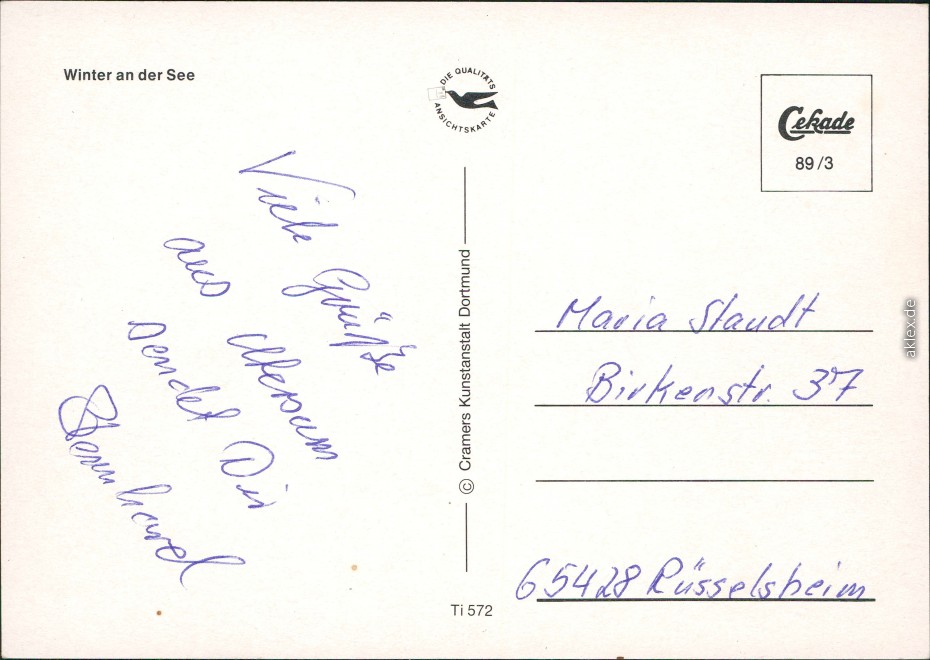 Winter an der See
DIE QUALITÄTS
ANSICHTSKARTE
Cekade
89/3
Viele Grüße
aus Utersum
sendet Dir
Bernhard
© Cramers Kunstanstalt Dortmund
Maria Staudt
Birkenstr. 37
65428 Rüsselsheim
Ti 572
aklex.de